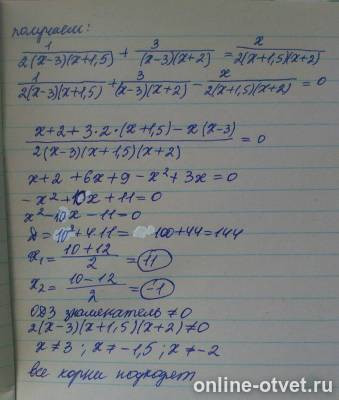 получаем:
1/2(x-3)(x+1,5) + 3/(x-3)(x+2) = x/2(x+1,5)(x+2)
1/2(x-3)(x+1,5) + 3/(x-3)(x+2) - x/2(x+1,5)(x+2) = 0
x+2+3·2·(x+1,5)-x(x-3)/2(x-3)(x+1,5)(x+2) = 0
x+2+6x+9-x²+3x=0
-x²+10x+11=0
x²-10x-11=0
Д=10²+4·11= 100+44=144
x₁=10+12/2=11
x₂=10-12/2=-1
ОДЗ знаменатель≠0
2(x-3)(x+1,5)(x+2)≠0
x≠3; x≠-1,5; x≠-2
все корни подходят
online-otvet.ru